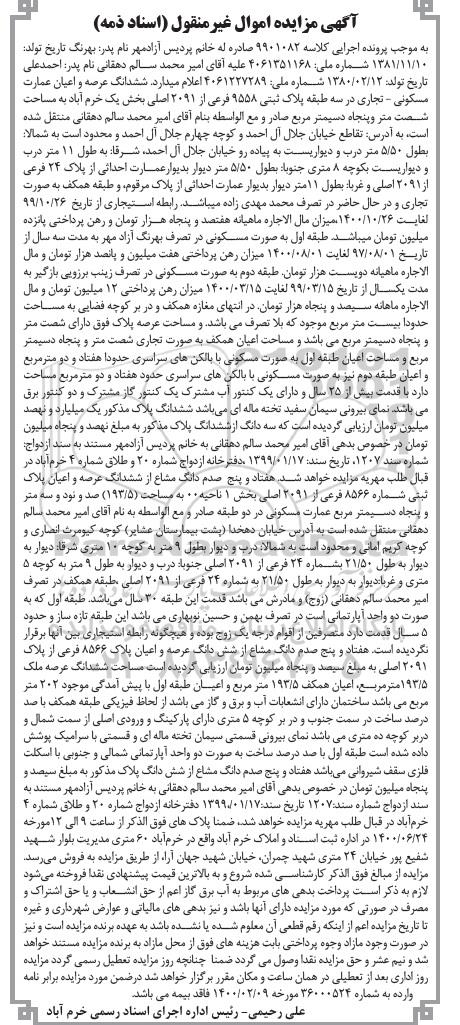 آگهی مزایده اموال غیرمنقول (اسناد ذمه)
به موجب پرونده اجرایی کلاسه ۹۹۰۱۰۸۲ صادره له خانم پردیس آزادمهر نام پدر: بهرنگ تاریخ تولد:
۱۳۸۱/۱۱/۱۰ شماره ملی: ۴۰۶۱۳۵۱۱۶۸ علیه آقای امیر محمد سالم دهقانی نام پدر: احمدعلی
تاریخ تولد: ۱۳۸۰/۰۲/۱۲ شماره ملی: ۴۰۶۱۲۲۷۲۸۹ اعلام میدارد. ششدانگ عرصه و اعیان عمارت
مسکونی - تجاری در سه طبقه پلاک ثبتی ۹۵۵۸ فرعی از ۲۰۹۱ اصلی بخش یک خرم آباد به مساحت
شصت متر وپنجاه دسیمتر مربع صادر و مع الواسطه بنام آقای امیر محمد سالم دهقانی منتقل شده
است، به آدرس: تقاطع خیابان جلال آل احمد و کوچه چهارم جلال آل احمد و محدود است به شمالا:
بطول ۵/۵۰ متر درب و دیواریست به پیاده رو خیابان جلال آل احمد، شرقا: به طول ۱۱ متر درب
و دیواریست بکوچه ۸ متری جنوبا: بطول ۵/۵۰ متر دیوار بدیوارعمارت احداثی از پلاک ۲۴ فرعی
از۲۰۹۱ اصلی و غربا: بطول ۱۱متر دیوار بدیوار عمارت احداثی از پلاک مرقوم، و طبقه همکف به صورت
تجاری و در حال حاضر در تصرف محمد مهدی زاده میباشد. رابطه استیجاری از تاریخ ۹۹/۱۰/۲۶
لغایت ۱۴۰۰/۱۰/۲۶،میزان مال الاجاره ماهیانه هفتصد و پنجاه هزار تومان و رهن پرداختی پانزده
میلیون تومان میباشد. طبقه اول به صورت مسکونی در تصرف بهرنگ آزاد مهر به مدت سه سال از
تاریخ ۹۷/۰۸/۰۱ لغایت ۱۴۰۰/۰۸/۰۱ میزان رهن پرداختی هفت میلیون و پانصد هزار تومان و مال
الاجاره ماهیانه دویست هزار تومان. طبقه دوم به صورت مسکونی در تصرف زینب برزویی بازگیر به
مدت یکسال از تاریخ ۹۹/۰۳/۱۵ لغایت ۱۴۰۰/۰۳/۱۵ میزان رهن پرداختی ۱۲ میلیون تومان و مال
الاجاره ماهانه سیصد و پنجاه هزار تومان. در انتهای مغازه همکف و در بر کوچه فضایی به مساحت
حدودا بیست متر مربع موجود که بلا تصرف می باشد. و مساحت عرصه پلاک فوق دارای شصت متر
و پنجاه دسیمتر مربع می باشد و مساحت اعیان همکف به صورت تجاری شصت متر و پنجاه دسیمتر
مربع و مساحت اعیان طبقه اول به صورت مسکونی با بالکن های سراسری حدودا هفتاد و دو مترمربع
و اعیان طبقه دوم نیز به صورت مسکونی با بالکن های سراسری حدود هفتاد و دو مترمربع مساحت
دارد با قدمت بیش از ۲۵ سال و دارای یک کنتور آب مشترک یک کنتور گاز مشترک و دو کنتور برق
می باشد نمای بیرونی سیمان سفید تخته ماله ای می‌باشد ششدانگ پلاک مذکور یک میلیارد و نهصد
میلیون تومان ارزیابی گردیده است که سه دانگ ازششدانگ پلاک مذکور به مبلغ نهصد و پنجاه میلیون
تومان در خصوص بدهی آقای امیر محمد سالم دهقانی به خانم پردیس آزادمهر مستند به سند ازدواج:
شماره سند ۱۲۰۷، تاریخ سند: ۱۳۹۹/۰۱/۱۷ ،دفترخانه ازدواج شماره ۲۰ و طلاق شماره ۴ خرم‌آباد در
قبال طلب مهریه مزایده خواهد شد. هفتاد و پنج صدم دانگ مشاع از ششدانگ عرصه و اعیان پلاک
ثبتی شماره ۸۵۶۶ فرعی از ۲۰۹۱ اصلی بخش ۱ ناحیه۰۰ به مساحت (۱۹۳/۵) صد و نود و سه متر
و پنجاه دسیمتر مربع عمارت مسکونی در دو طبقه صادر و مع الواسطه به نام آقای امیر محمد سالم
دهقانی منتقل شده است به آدرس خیابان دهخدا (پشت بیمارستان عشایر) کوچه کیومرث انصاری و
کوچه کریم امانی و محدود است به شمالا: درب و دیوار بطول ۹ متر به کوچه ۱۰ متری شرقا: دیوار به
دیوار به طول ۲۱/۵۰ بشماره ۲۴ فرعی از ۲۰۹۱ اصلی جنوبا: درب و دیوار به طول ۹ متر به کوچه ۵
متری و غربا:دیوار به دیوار به طول ۲۱/۵۰ به شماره ۲۴ فرعی از ۲۰۹۱ اصلی ،طبقه همکف در تصرف
امیر محمد سالم دهقانی (زوج) و مادرش می باشد قدمت این طبقه ۳۰ سال می‌باشد. طبقه اول که به
صورت دو واحد آپارتمانی است در تصرف بهمن و حسین نوبهاری می باشد این طبقه تازه ساز و حدود
۵ سال قدمت دارد متصرفین از اقوام درجه یک زوج بوده و هیچگونه رابطه استیجاری بین آنها برقرار
نگردیده است. هفتاد و پنج صدم دانگ مشاع از شش دانگ عرصه و اعیان پلاک ۸۵۶۶ فرعی از پلاک
۲۰۹۱ اصلی به مبلغ سیصد و پنجاه میلیون تومان ارزیابی گردیده است مساحت ششدانگ عرصه ملک
۱۹۳/۵مترمربع، اعیان همکف ۱۹۳/۵ متر مربع و اعیان طبقه اول با پیش آمدگی موجود ۲۰۲ متر
مربع می باشد ساختمان دارای انشعابات آب و برق و گاز می باشد از لحاظ فیزیکی طبقه همکف با صد
درصد ساخت در سمت جنوب و در بر کوچه ۵ متری دارای پارکینگ و ورودی اصلی از سمت شمال و
دربر کوچه ده متری می باشد نمای بیرونی قسمتی سیمان تخته ماله ای و قسمتی با سرامیک پوشش
داده شده است طبقه اول با صد درصد ساخت به صورت دو واحد آپارتمانی شمالی و جنوبی با اسکلت
فلزی سقف شیروانی می‌باشد هفتاد و پنج صدم دانگ مشاع از شش دانگ پلاک مذکور به مبلغ سیصد و
پنجاه میلیون تومان در خصوص بدهی آقای امیر محمد سالم دهقانی به خانم پردیس آزادمهر مستند به
سند ازدواج شماره سند:۱۲۰۷ تاریخ سند:۱۳۹۹/۰۱/۱۷ دفترخانه ازدواج شماره ۲۰ و طلاق شماره ۴
خرم‌آباد در قبال طلب مهریه مزایده خواهد شد، ضمنا پلاک های فوق الذکر از ساعت ۹ الی ۱۲مورخه
۱۴۰۰/۰۶/۲۴ در اداره ثبت اسناد و املاک خرم آباد واقع در خرم‌آباد ۶۰ متری مدیریت بلوار شهید
شفیع پور خیابان ۲۴ متری شهید چمران، خیابان شهید جهان آرا، از طریق مزایده به فروش می‌رسد.
مزایده از مبالغ فوق الذکر کارشناسی شده شروع و به بالاترین قیمت پیشنهادی نقدا فروخته می‌شود
لازم به ذکر است پرداخت بدهی های مربوط به آب برق گاز اعم از حق انشعاب و یا حق اشتراک و
مصرف در صورتی که مورد مزایده دارای آنها باشد و نیز بدهی های مالیاتی و عوارض شهرداری و غیره
تا تاریخ مزایده اعم از اینکه رقم قطعی آن معلوم شده یا نشده باشد به عهده برنده مزایده است و نیز
در صورت وجود مازاد وجوه پرداختی بابت هزینه های فوق از محل مازاد به برنده مزایده مسترد خواهد
شد و نیم عشر و حق مزایده نقدا وصول می گردد ضمنا چنانچه روز مزایده تعطیل رسمی گردد مزایده
روز اداری بعد از تعطیلی در همان ساعت و مکان مقرر برگزار خواهد شد درضمن مورد مزایده برابر نامه
وارده به شماره ۳۶۰۰۰۵۲۴ مورخه ۱۴۰۰/۰۲/۰۹ فاقد بیمه می باشد.
علی رحیمی- رئیس اداره اجرای اسناد رسمی خرم آباد